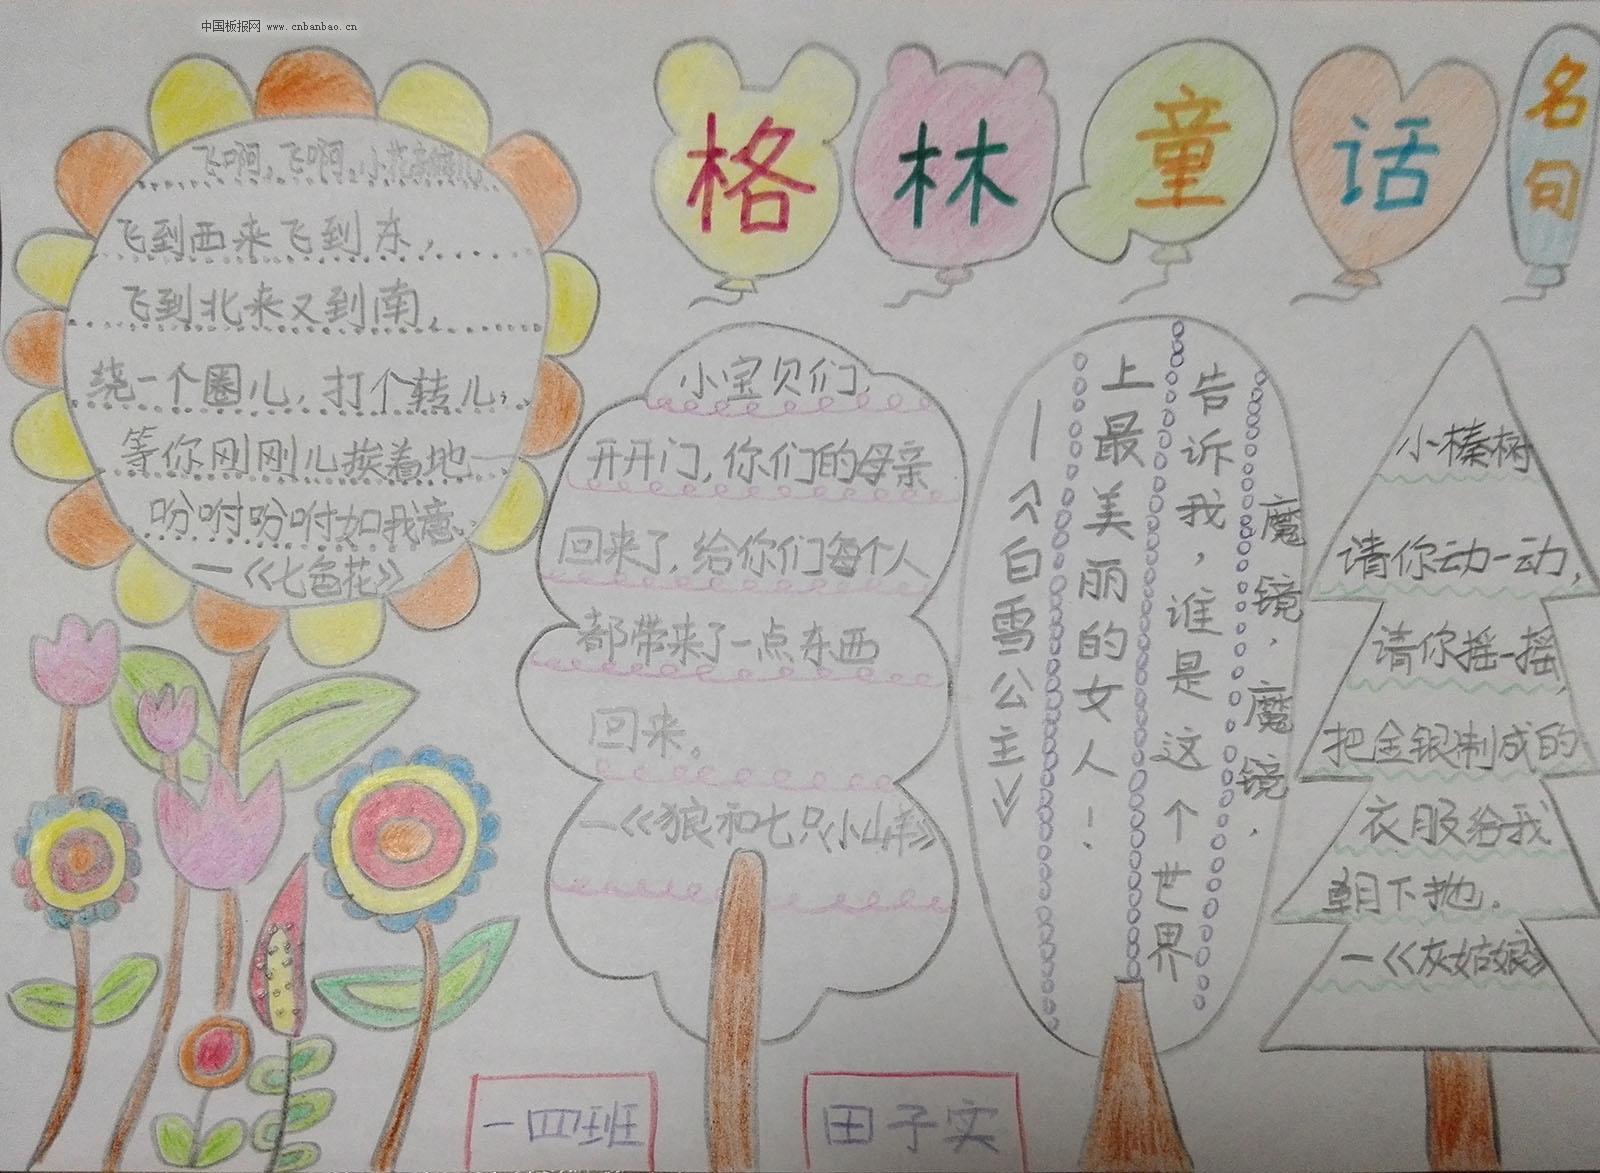 中国板报网 www.cnbanbao.cn
格林童话
名句
飞啊,飞啊,小花瓣儿,
飞到西来飞到东,
飞到北来又到南,
绕一个圈儿,打个转儿,
等你刚刚儿挨着地—
吩咐吩咐如我意.
—《七色花》
小宝贝们,
开开门,你们的母亲
回来了,给你们每个人
都带来了一点东西
回来。
—《狼和七只小山羊》
魔镜,魔镜,
告诉我,谁是这个世界
上最美丽的女人!
—《白雪公主》
小榛树
请你动一动,
请你摇一摇,
把金银制成的
衣服给我
朝下抛.
—《灰姑娘》
一四班
田子实